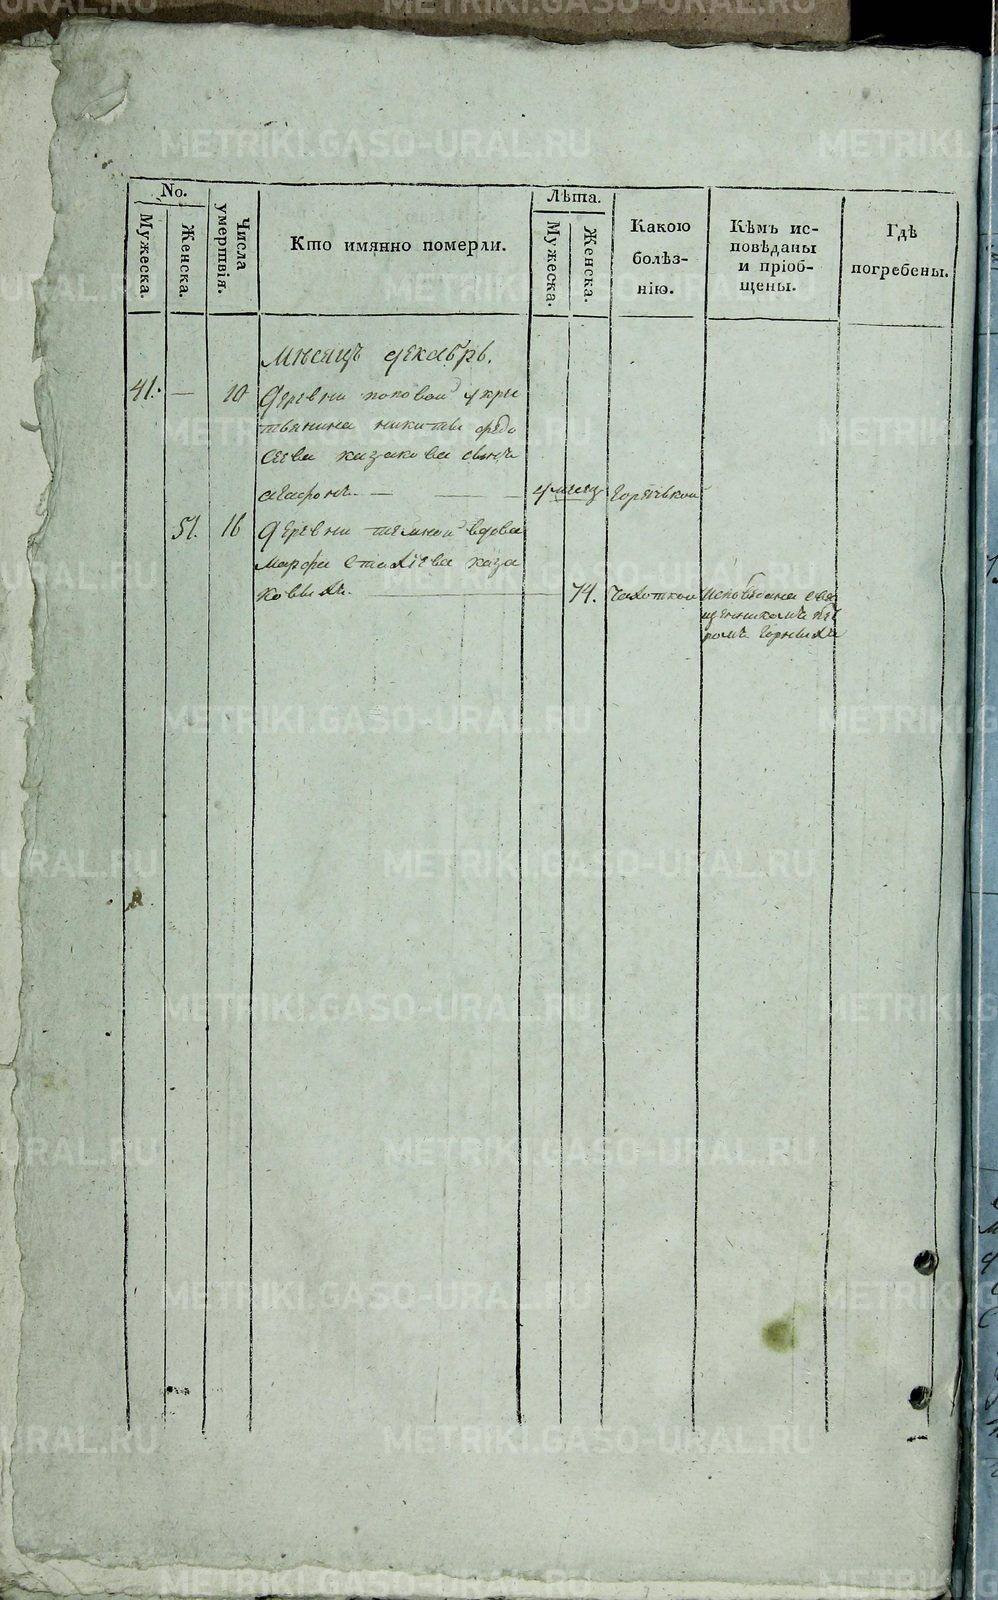 No.
Мужеска.
Женска.
Числа умертвія.
Кто имянно померли.
Лѣта.
Мужеска.
Женска.
Какою
болѣз-
нію.
Кѣмъ ис-
повѣданы
и пріоб-
щены.
Гдѣ
погребены.
Мѣсяцъ декабрь.
41. — 10 Деревни поповой у кре
тьянина никиты федо
сеева казакова сынъ
агафонъ. — 4 месяц горячкой
51. 16 Деревни темной вдова
Марфа Еталіева каза
ковыхъ. — 74. чахоткой исповедана свя
щенникомъ
ромъ Горныхъ
METRIKI.GASO-URAL.RU